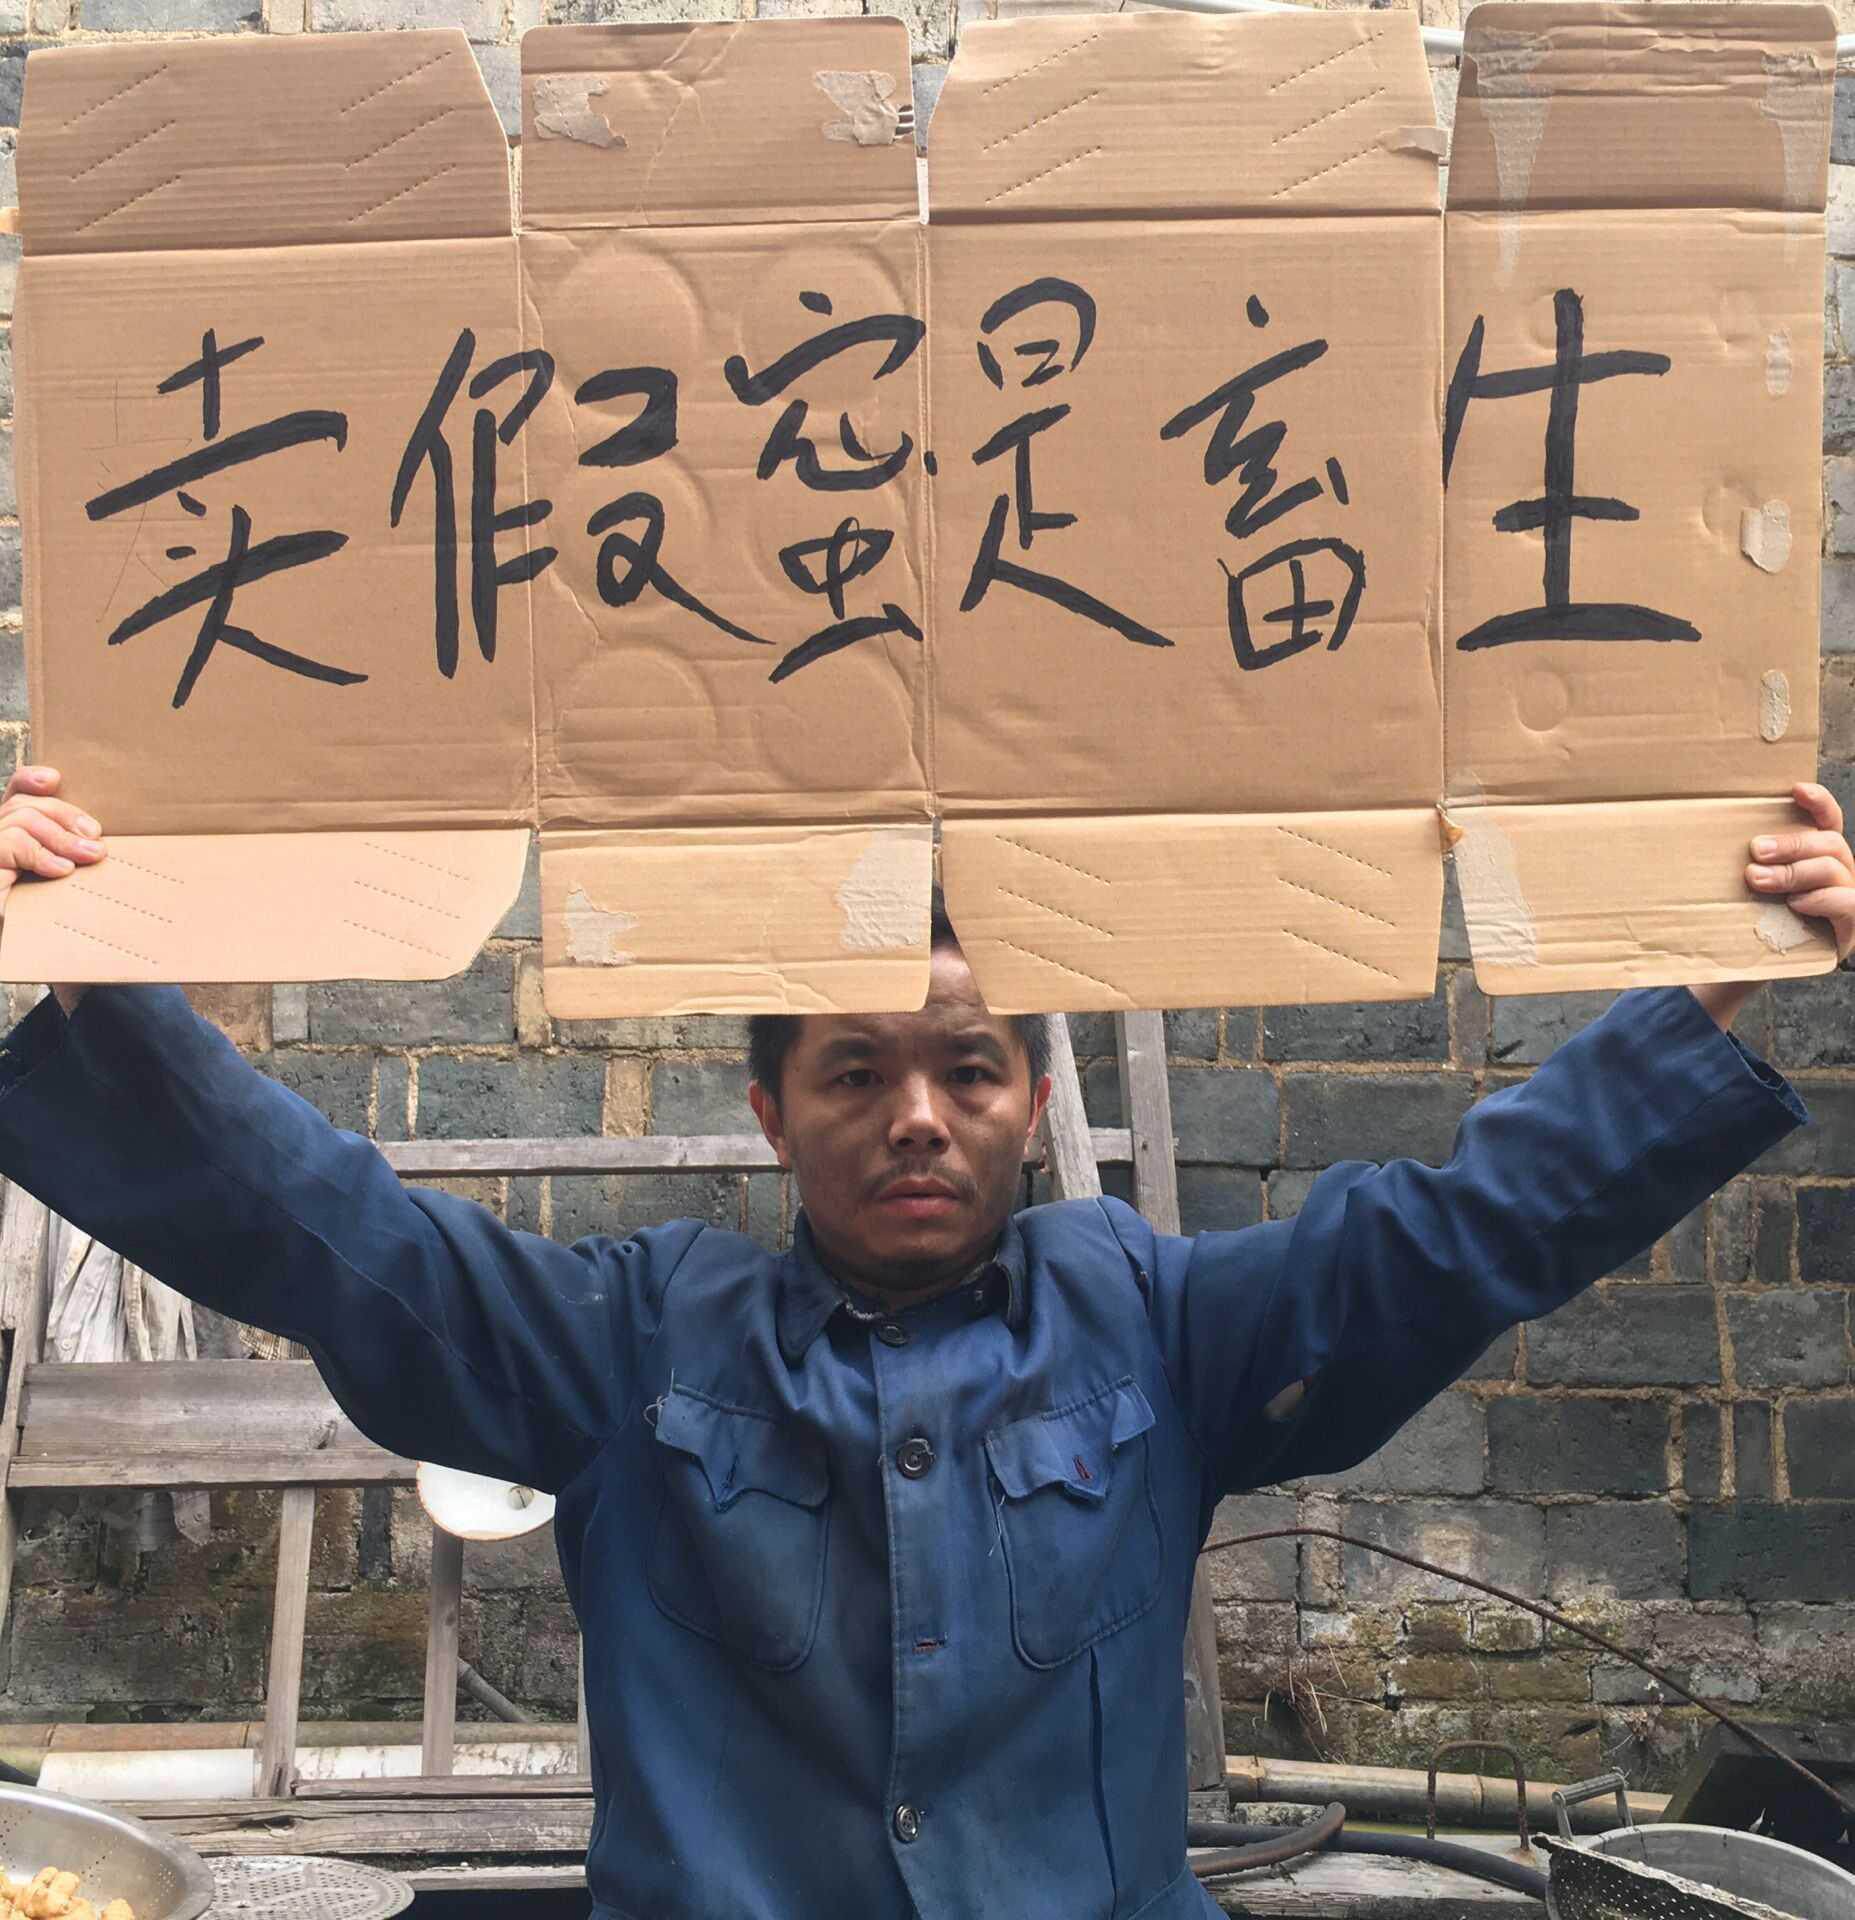 卖假蜜是畜生